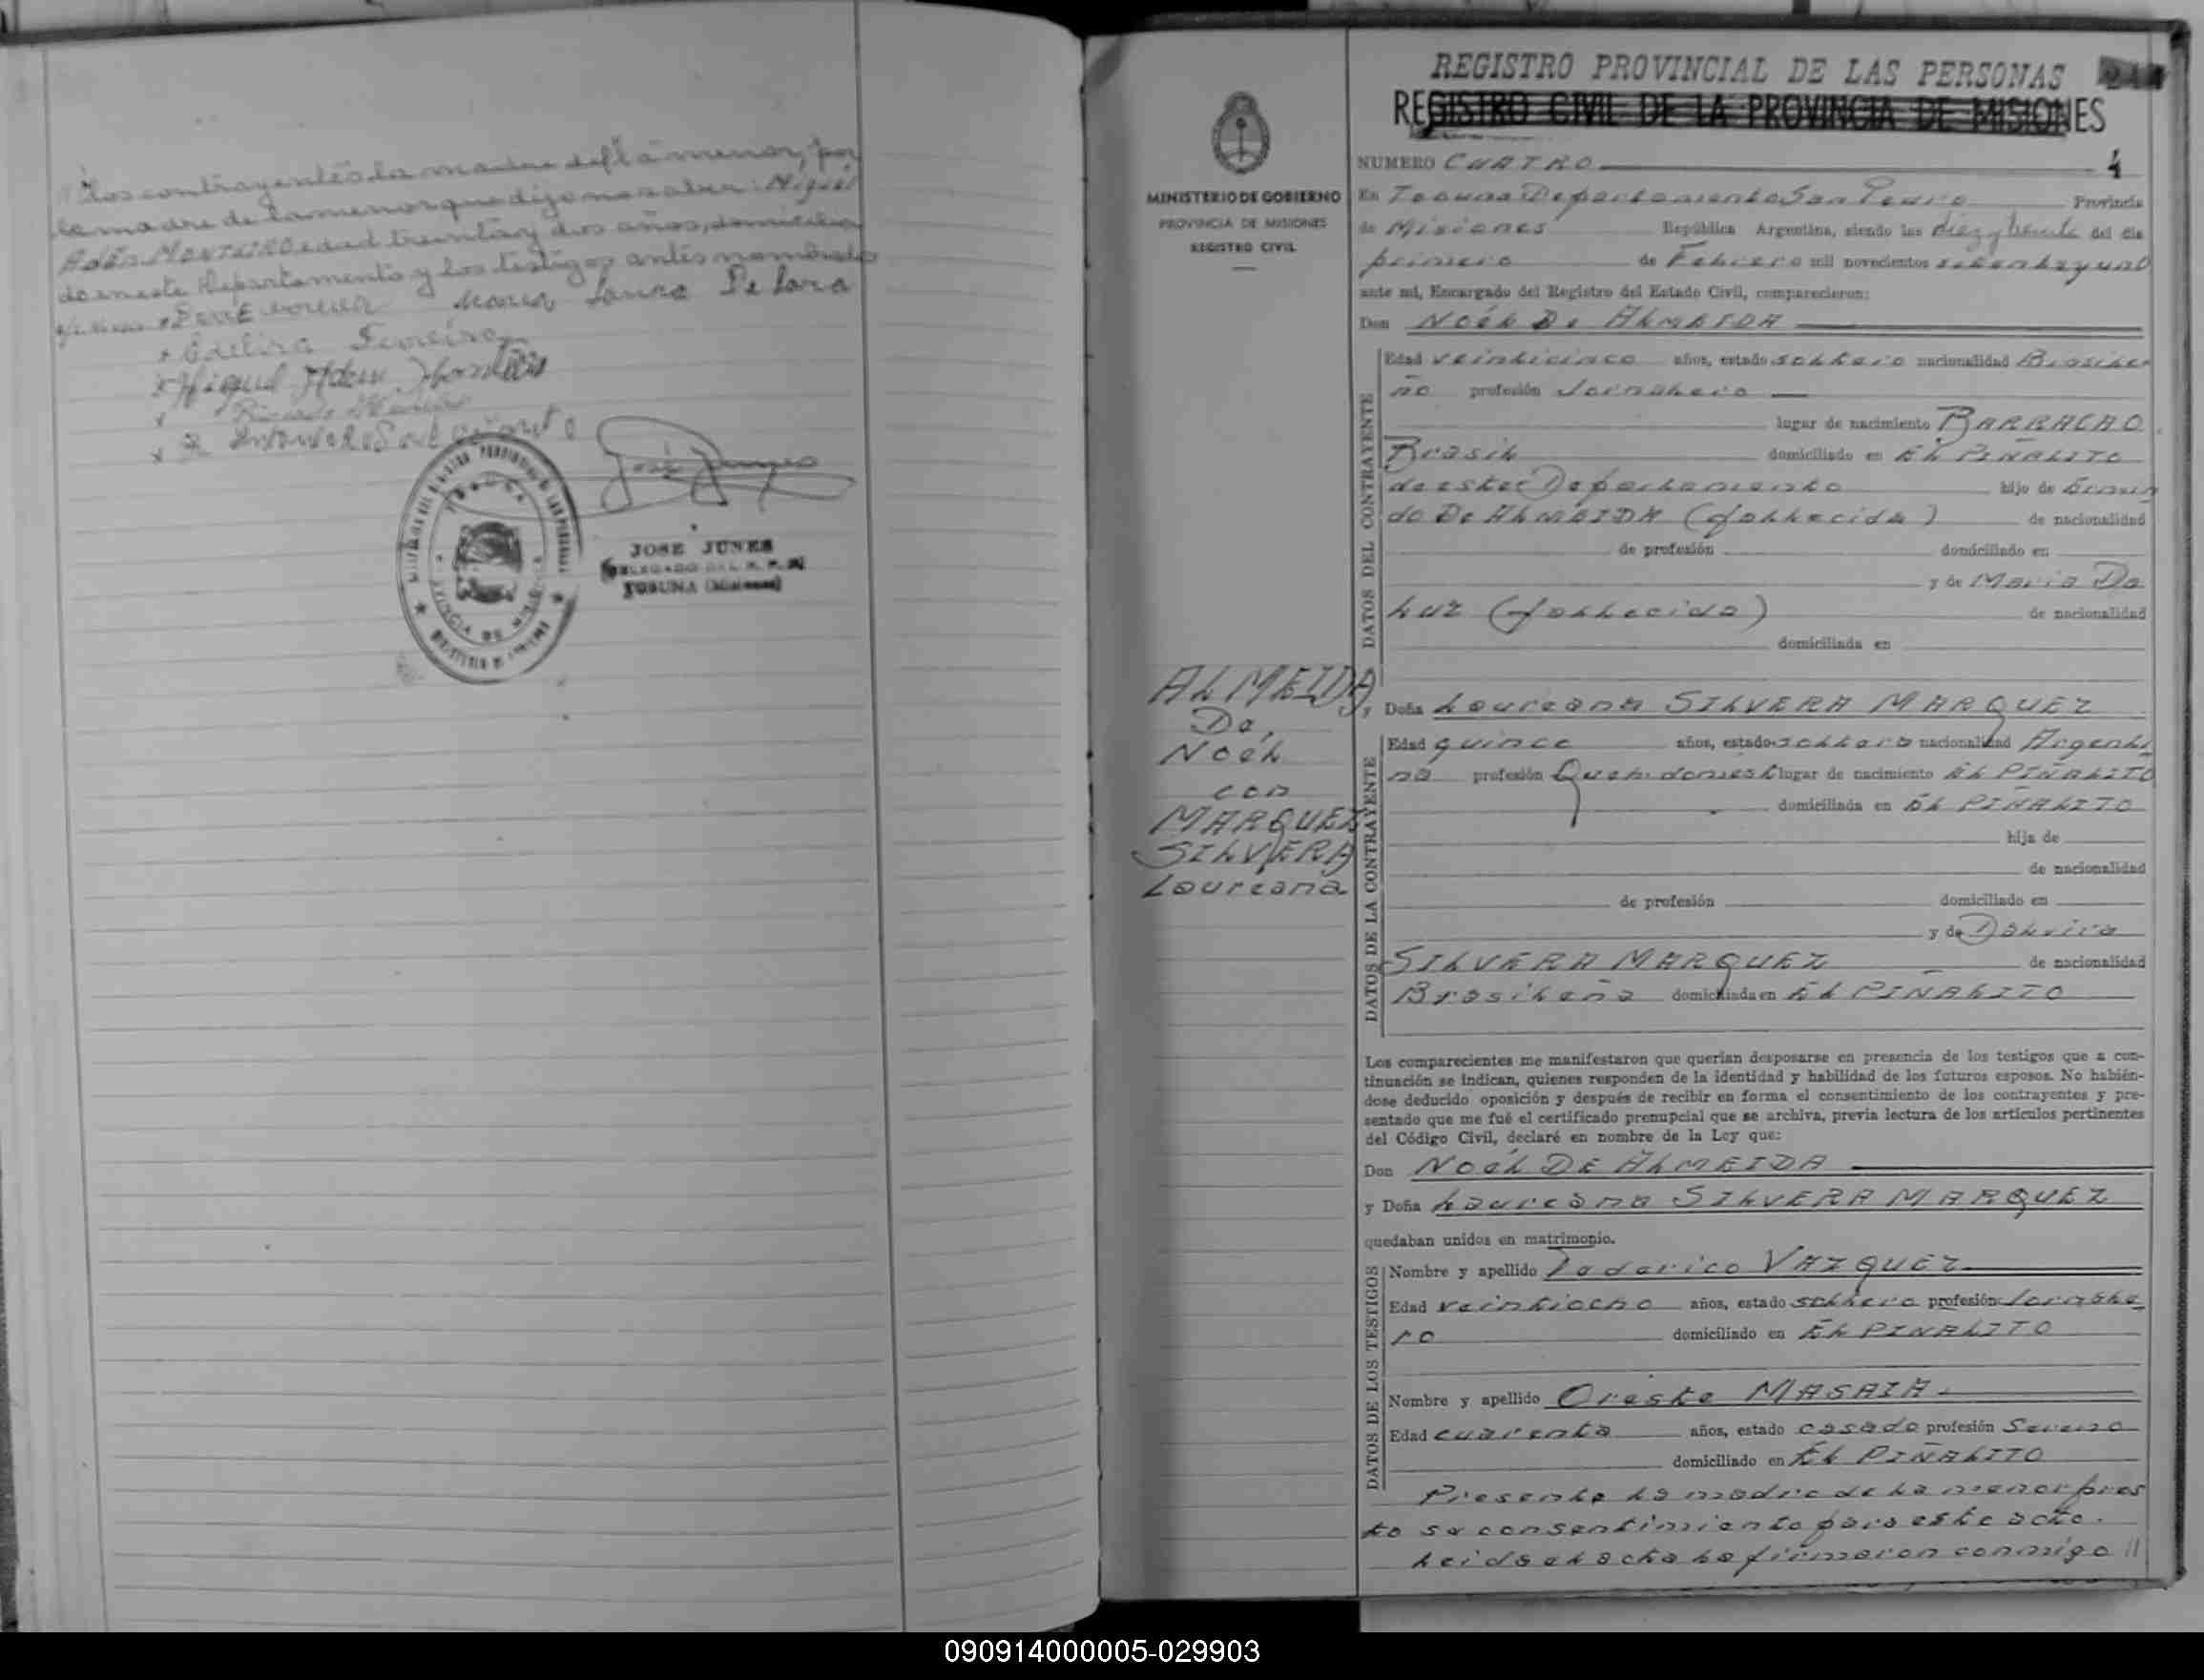 los contrayentes la madre de la menor, por
la madre de la menor que dijo no saber: Miguel
Adán MONTEIRO edad treinta y dos años, domicilia
do en este Departamento y los testigos antes nombrados
Maria Laura De Lara
Ferreira
Miguel Adan
JOSE JUNES
DELEGADO DEL R. P. P.
TOBUNA (Misiones)
MINISTERIO DE GOBIERNO
PROVINCIA DE MISIONES
REGISTRO CIVIL
ALMEIDA
De,
Noel
con
MARQUEZ
SILVERA
Laureana
REGISTRO PROVINCIAL DE LAS PERSONAS
REGISTRO CIVIL DE LA PROVINCIA DE MISIONES
NUMERO CUATRO 4
En Tobuna Departamento San Pedro Provincia
de Misiones República Argentina, siendo las diez y treinta del día
primero de Febrero mil novecientos setenta y uno
ante mí, Encargado del Registro del Estado Civil, comparecieron:
Don Noél De ALMEIDA
DATOS DEL CONTRAYENTE
Edad veinticinco años, estado soltero nacionalidad Brasile
ño profesión Jornalero
lugar de nacimiento BARRACAO
Brasil domiciliado en EL PIÑALITO
de este Departamento hijo de
do De ALMEIDA (fallecido) de nacionalidad
de profesión domiciliado en
y de Maria Da
Luz (fallecida) de nacionalidad
domiciliada en
y Doña Laureana SILVERA MARQUEZ
DATOS DE LA CONTRAYENTE
Edad quince años, estado soltera nacionalidad Argenti
na profesión Queh. domest lugar de nacimiento EL PIÑALITO
domiciliada en EL PIÑALITO
hija de
de nacionalidad
de profesión domiciliado en
y de Dalvira
SILVERA MARQUEZ de nacionalidad
Brasileña domiciliada en EL PIÑALITO
Los comparecientes me manifestaron que querían desposarse en presencia de los testigos que a con-
tinuación se indican, quienes responden de la identidad y habilidad de los futuros esposos. No habién-
dose deducido oposición y después de recibir en forma el consentimiento de los contrayentes y pre-
sentado que me fué el certificado prenupcial que se archiva, previa lectura de los artículos pertinentes
del Código Civil, declaré en nombre de la Ley que:
Don Noél DE ALMEIDA
y Doña Laureana SILVERA MARQUEZ
quedaban unidos en matrimonio.
DATOS DE LOS TESTIGOS
Nombre y apellido Federico VAZQUEZ
Edad veintiocho años, estado soltero profesión Jornale
ro domiciliado en EL PINALITO
Nombre y apellido Oreste MASAIA
Edad cuarenta años, estado casado profesión Sereno
domiciliado en EL PIÑALITO
Presente la madre de la menor pres
to su consentimiento para este acto.
Leida el acta la firmaron conmigo //
090914000005-029903